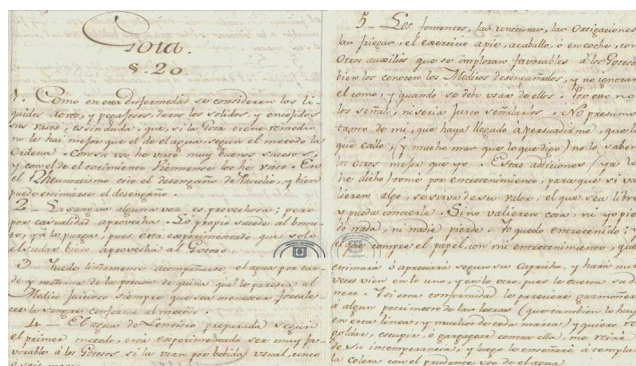 Gota.
§. 20.
1. Como en esta Enfermedad se consideren los li-
quidos acres, y pegajosos, duros los solidos, y encojidos
sus vasos; es sin duda, que si la Gota tiene remedio
no le hai mejor que el de el agua, segun el metodo la
Ordena. Con su uso he visto muy buenos sucesos
y con el de el cocimiento
el Rhumatismo
puede
2. La sangria alguna vez es provechosa; pero
por casualidad aprovecha. Lo propio sucede al
y a la purga, pues está experimentado que solo
el sudar bien aprovecha al Gotoso.
3. Puede lindamente acompañarse el agua por tar-
de, y mañana de la de quina que le parezca al
Medico Juicioso siempre que sea menester fortale-
cer la sangre conforme al metodo.
4. El agua de Lentisco preparada segun
el primer metodo, está experimentado ser muy fa-
vorable á los Gotosos si la usan por bebida usual, cinco
ó seis
5. Los fomentos, las unturas, las Ortigaciones
las friegas, el exercicio a pie, a caballo, ó en coche, con
Otros auxilios que se emplean favorables á los Gotosos
bien los conocen los Medicos desengañados, y no ignoran
el como, y quando se debe usar de ellos. Por eso no
los señalo, ni seria justo señalarlos. No presumo
tanto de mi, que haya llegado a persuadirme, que lo
que callo, (y mucho mas que lo que digo) no lo saben
otros mejor que yo. Estas adiciones (ya lo
he dicho) tomo por entretenimiento, para que si va-
lieren algo, se sirva de su valor, el que sea libre
y pueda conocerla. Si no valieren cosa, ni yo pier-
do nada, ni nadie pierde. Yo quedo entretenido; y
el que compre el papel, con mi entretenimiento, que
estimará ó apreciará segun su Capricho, y hará mu-
chas veces bien en lo uno, y en lo otro, pues le cuesta su di-
nero. Y si esta conformidad le pareciere
á algun de las letras (que tambien lo hay
en esta linea, y muchos de toda marca) y quiera re-
goldar, escupir, ó contra ella, me reiré
de su incomperancia, y luego le enseñaré á templar
la colera con el prudente uso de el agua.